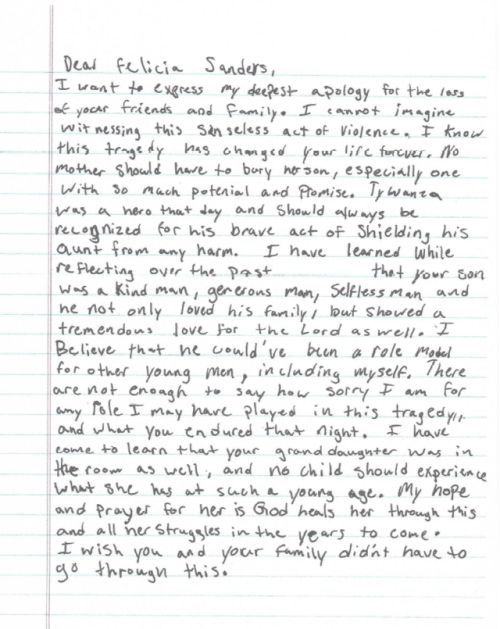 Dear Felicia Sanders,
I want to express my deepest apology for the loss
of your friends and family. I cannot imagine
witnessing this senseless act of violence. I know
this tragedy has changed your life forever. No
mother should have to bury her son, especially one
with so much potenial and promise. Tywanza
was a hero that day and should always be
recognized for his brave act of shielding his
aunt from any harm. I have learned while
reflecting over the past that your son
was a kind man, generous man, selfless man and
he not only loved his family, but showed a
tremendous love for the Lord as well. I
Believe that he would've been a role model
for other young men, including myself. There
are not enough to say how sorry I am for
any role I may have played in this tragedy,
and what you endured that night. I have
come to learn that your granddaughter was in
the room as well, and no child should experience
what she has at such a young age. My hope
and prayer for her is God heals her through this
and all her struggles in the years to come.
I wish you and your family didn't have to
go through this.